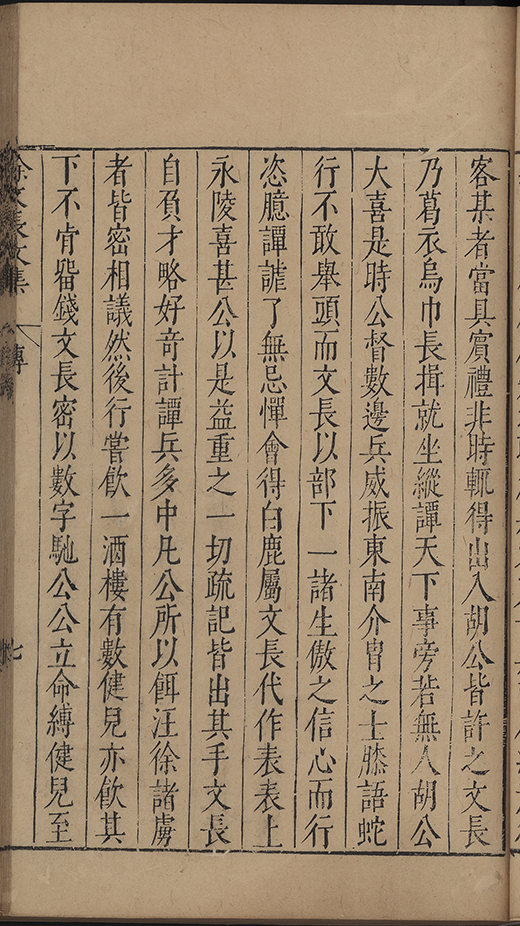 客某者當具賓禮非時輒得出入胡公皆許之文長
乃葛衣烏巾長揖就坐縱譚天下事旁若無人胡公
大喜是時公督數邊兵威振東南介胄之士膝語蛇
行不敢舉頭而文長以部下一諸生傲之信心而行
恣臆譚謔了無忌憚會得白鹿屬文長代作表表上
永陵喜甚公以是益重之一切疏記皆出其手文長
自負才略好奇計譚兵多中凡公所以餌汪徐諸虜
者皆密相議然後行嘗飲一酒樓有數健兒亦飲其
下不肯畱錢文長密以數字馳公公立命縛健兒至
徐文長文集 傳 七